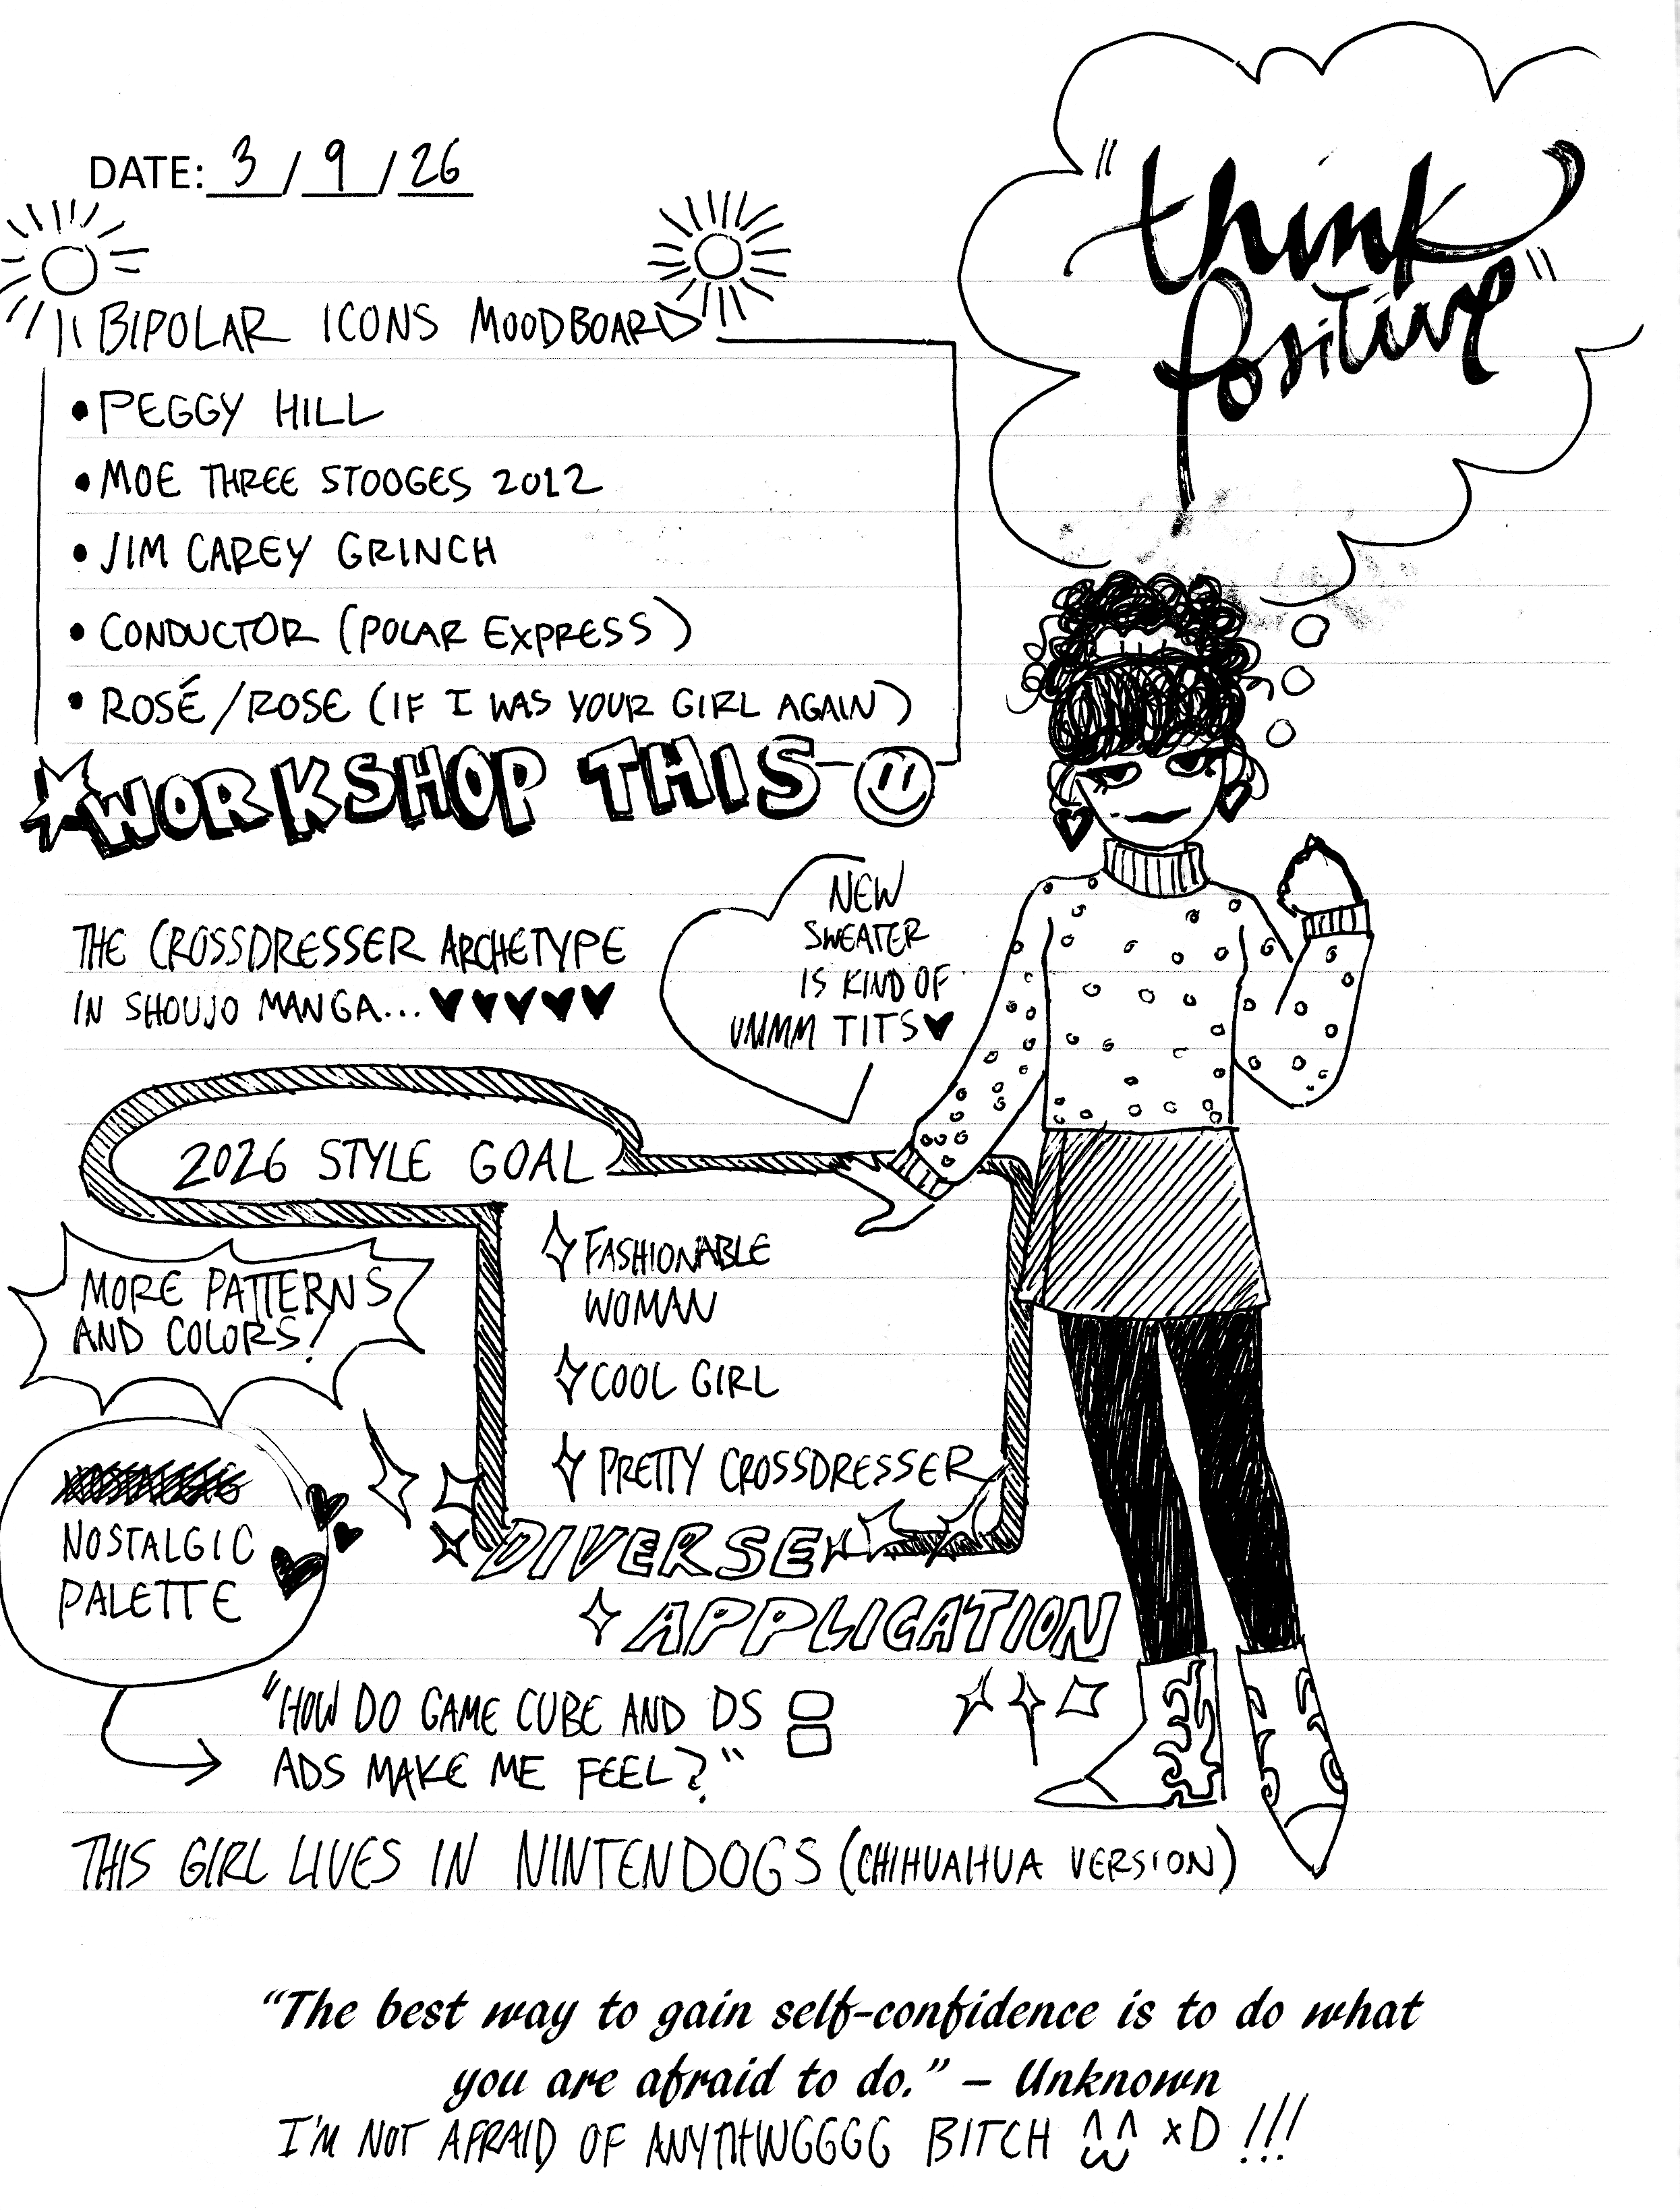 DATE: 3 / 9 / 26
"think
positive"
BIPOLAR ICONS MOODBOARD
• PEGGY HILL
• MOE THREE STOOGES 2012
• JIM CAREY GRINCH
• CONDUCTOR (POLAR EXPRESS)
• ROSÉ/ROSE (IF I WAS YOUR GIRL AGAIN)
WORKSHOP THIS
NEW
SWEATER
IS KIND OF
UMMM TITS♥
THE CROSSDRESSER ARCHETYPE
IN SHOUJO MANGA... ♥♥♥♥♥
2026 STYLE GOAL
FASHIONABLE
WOMAN
COOL GIRL
PRETTY CROSSDRESSER
MORE PATTERNS
AND COLORS!
NOSTALGIC
PALETTE
DIVERSE
APPLICATION
"HOW DO GAME CUBE AND DS
ADS MAKE ME FEEL?"
THIS GIRL LIVES IN NINTENDOGS (CHIHUAHUA VERSION)
“The best way to gain self-confidence is to do what
you are afraid to do.” – Unknown
I'M NOT AFRAID OF ANYTHINGGGG BITCH ^w^ xD !!!